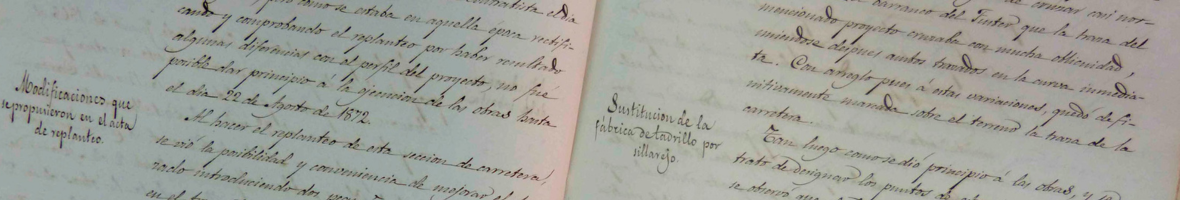 contratista el dia
pero como se estaba en aquella época rectifi-
cando y comprobando el replanteo por haber resultado
algunas diferencias con el perfil del proyecto, no fué
posible dar principio á la ejecucion de las obras hasta
el dia 22 de Agosto de 1872.
Modificaciones que
se propusieron en el acta
de replanteo.
Al hacer el replanteo de esta seccion de carretera,
se vió la posibilidad y conveniencia de mejorar el
zado introduciendo dos
en el
de cruzar casi nor-
barranco del Tintor, que la traza del
mencionado proyecto cruzaba con mucha oblicuidad,
uniendose despues ambos trazados en la curva inmedia-
ta. Con arreglo pues á estas variaciones, quedó de fi-
nitivamente marcada sobre el terreno la traza de la
carretera.
Sustitucion de la
fábrica de ladrillo por
sillarejo.
Tan luego como se dió principio á las obras, y se
trató de designar los puntos de
se observó que